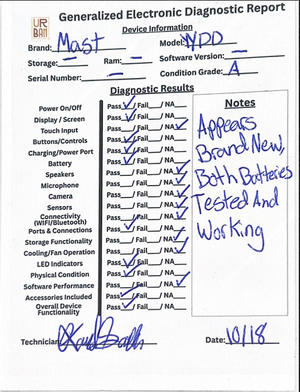 UR
BAN
Generalized Electronic Diagnostic Report
Device Information
Brand: Mast Model: YDD
Storage: — Ram: — Software Version: —
Serial Number: — Condition Grade: A
Diagnostic Results
Power On/Off Pass ✓ Fail NA
Display / Screen Pass ✓ Fail NA
Touch Input Pass Fail NA ✓
Buttons/Controls Pass ✓ Fail NA
Charging/Power Port Pass ✓ Fail NA
Battery Pass ✓ Fail NA
Speakers Pass Fail NA ✓
Microphone Pass Fail NA ✓
Camera Pass Fail NA ✓
Sensors Pass Fail NA ✓
Connectivity
(WiFi/Bluetooth) Pass Fail NA ✓
Ports & Connections Pass ✓ Fail NA
Storage Functionality Pass Fail NA ✓
Cooling/Fan Operation Pass Fail NA ✓
LED Indicators Pass ✓ Fail NA
Physical Condition Pass ✓ Fail NA
Software Performance Pass Fail NA ✓
Accessories Included Pass ✓ Fail NA
Overall Device
Functionality Pass ✓ Fail NA
Notes
Appears
Brand New,
Both Batteries
Tested And
Working
Technician:
Date: 10/18